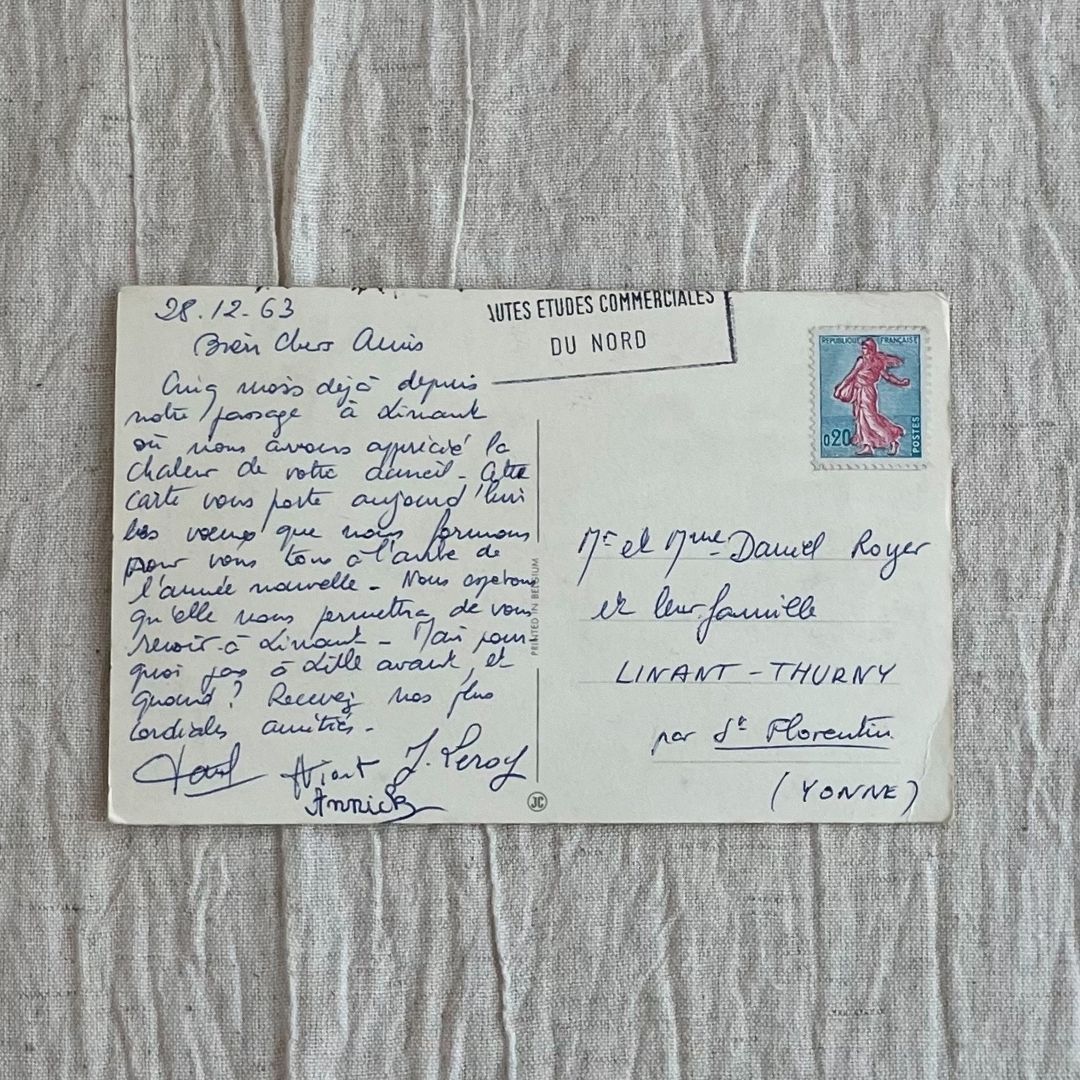 28.12-63
Bien Chers Amis
Cinq mois déjà depuis
notre passage à Linant
où nous avons apprécié la
chaleur de votre accueil - Cette
carte vous porte aujourd'hui
les voeux que nous formons
pour vous tous à l'aube de
l'année nouvelle - Nous espérons
qu'elle nous permettra de vous
revoir à Linant - Mais pour
quoi pas à Lille avant, et
quand ? Recevez nos plus
cordiales amitiés -
J. Leroy
Annick
AUTES ETUDES COMMERCIALES
DU NORD
REPUBLIQUE FRANÇAISE
0,20
POSTES
Mr et Mme Daniel Royer
et leur famille
LINANT - THURNY
par St Florentin
(YONNE)
PRINTED IN BELGIUM
JC